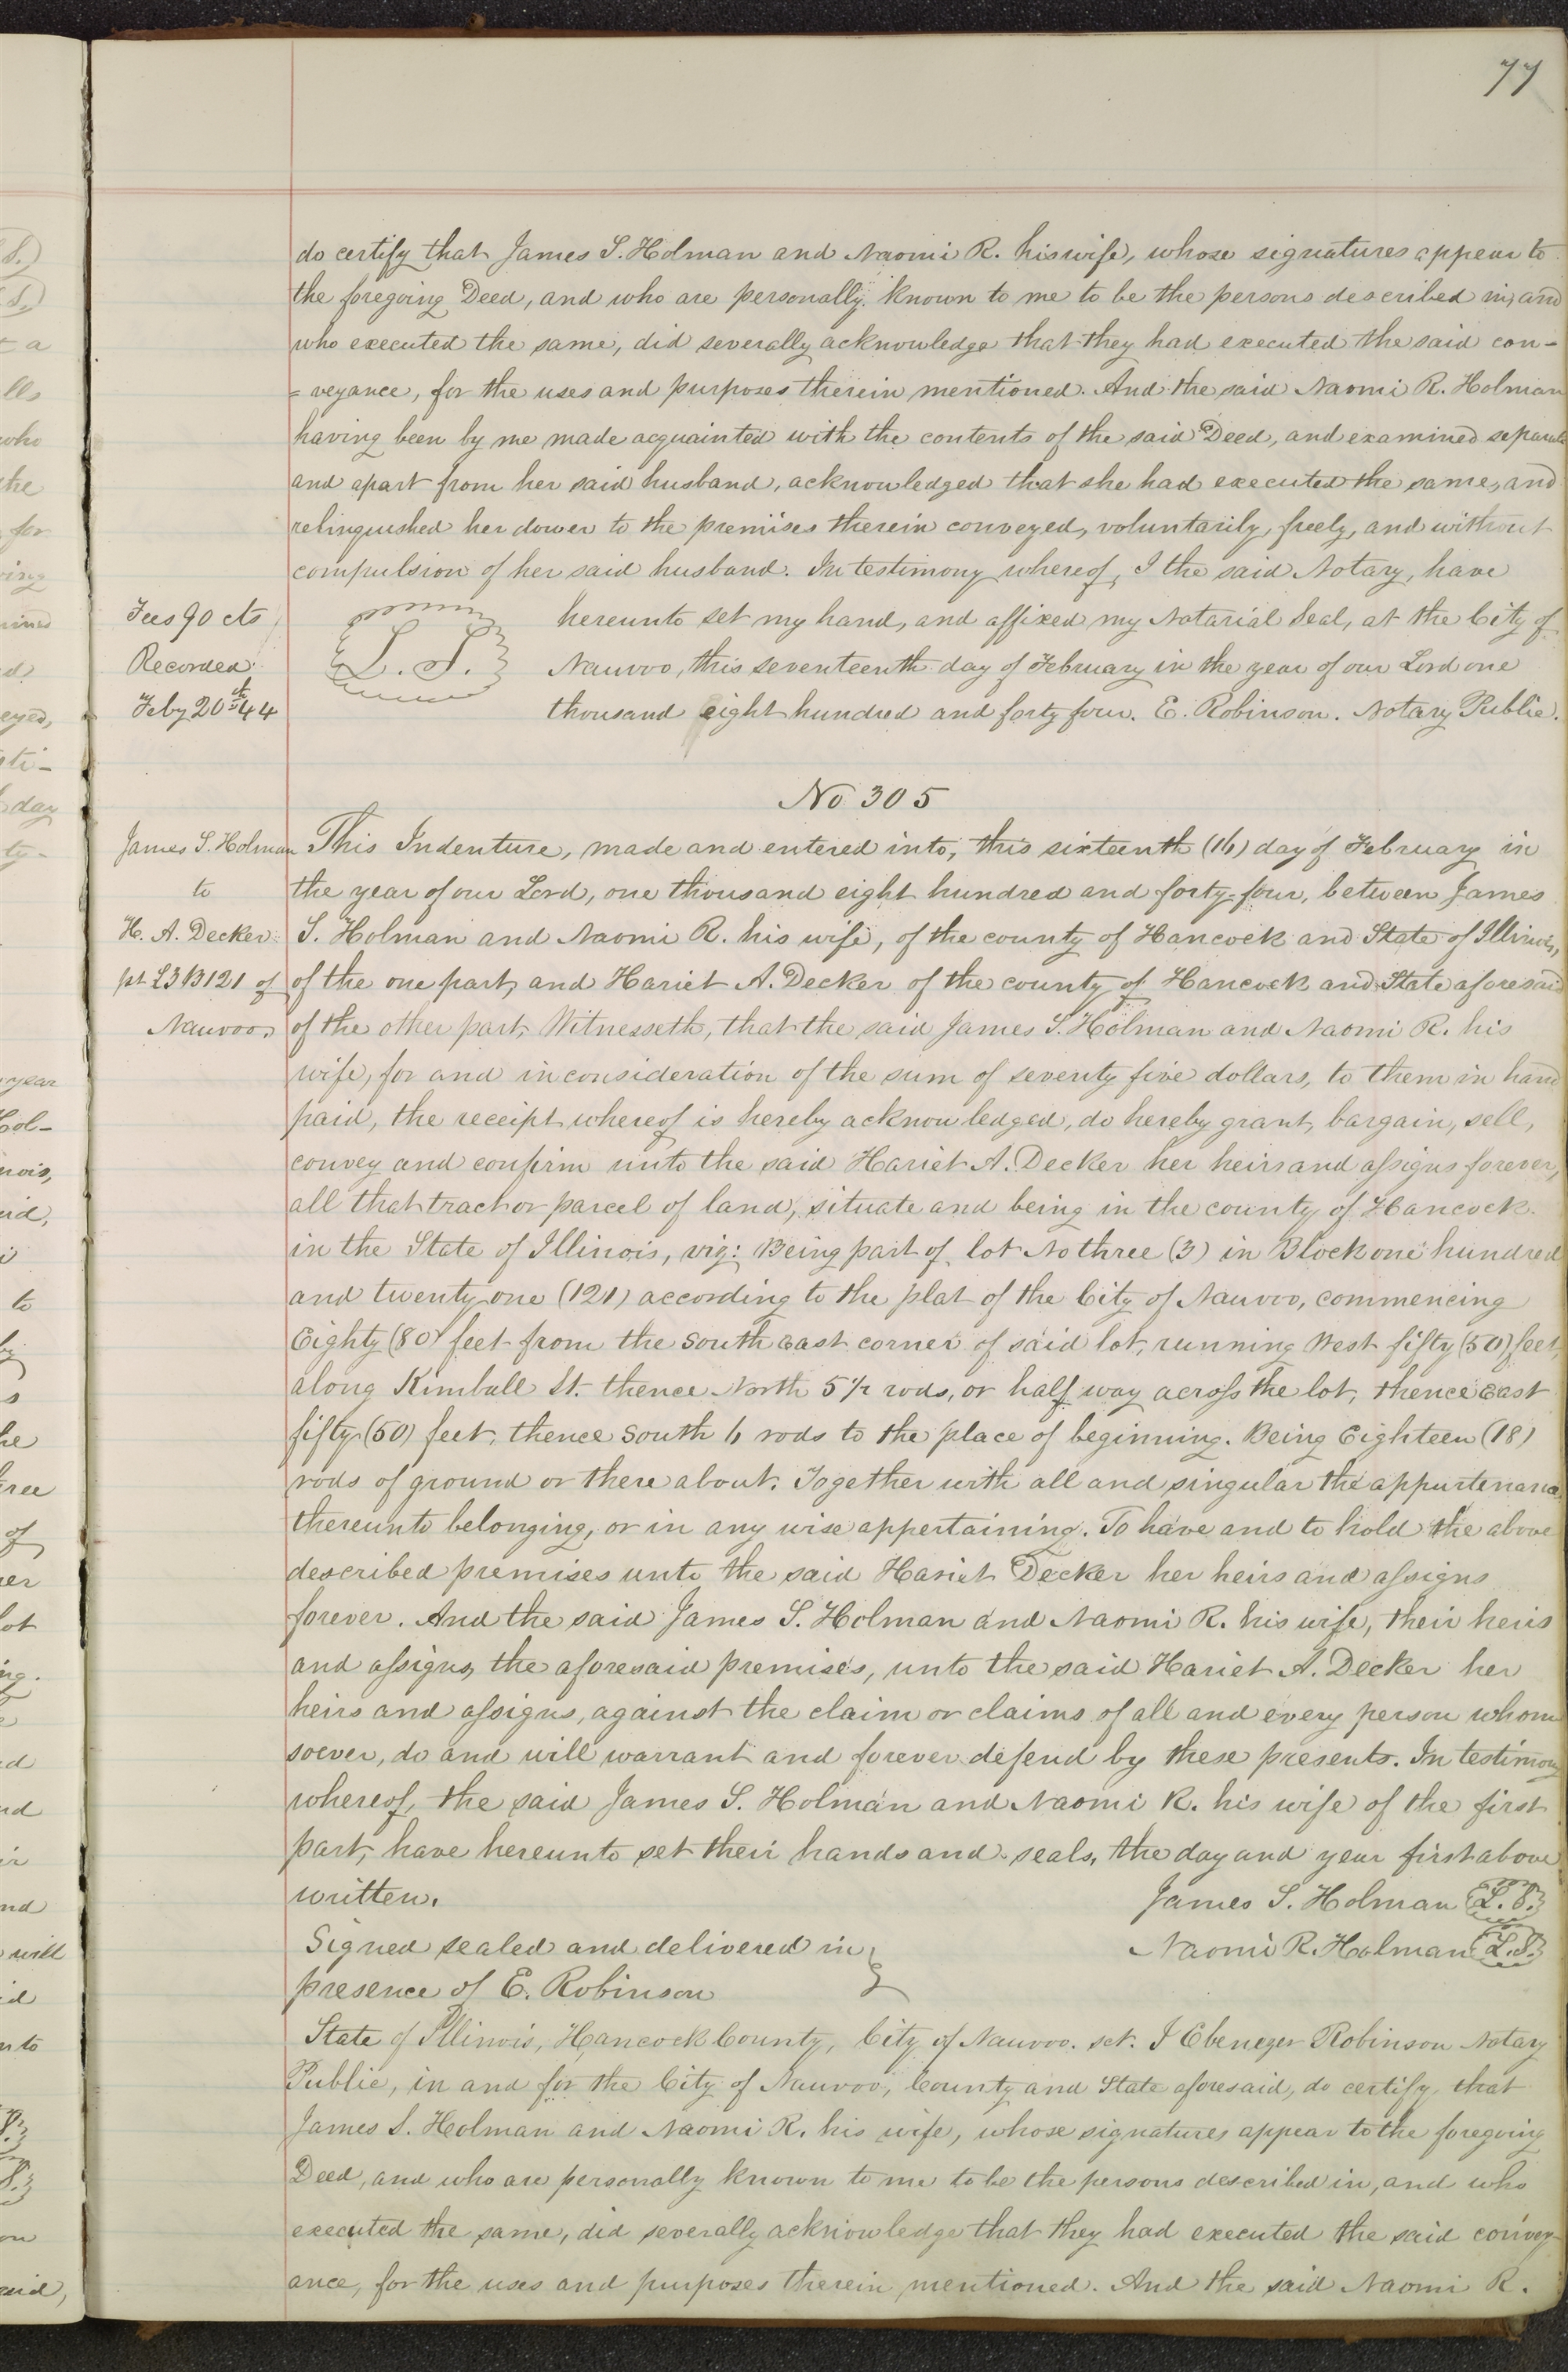 77
do certify that James S. Holman and Naomi R. his wife, whose signatures appear to
the foregoing Deed, and who are personally known to me to be the persons described in, and
who executed the same, did severally acknowledge that they had executed the said con-
=veyance, for the uses and purposes therein mentioned. And the said Naomi R. Holman
having been by me made acquainted with the contents of the said Deed, and examined separate
and apart from her said husband, acknowledged that she had executed the same, and
relinquished her dower to the premises therein conveyed, voluntarily, freely, and without
compulsion of her said husband. In testimony whereof, I the said Notary, have
Fees 90 cts
Recorded
Feby 20th 44
L. S.
hereunto set my hand, and affixed my Notarial Seal, at the City of
Nauvoo, this seventeenth day of February in the year of our Lord one
thousand eight hundred and forty four. E. Robinson. Notary Public.
No 305
James S. Holman
to
H. A. Decker
pt L3 B121 of
Nauvoo,
This Indenture, made and entered into, this sixteenth (16) day of February in
the year of our Lord, one thousand eight hundred and forty four, between James
S. Holman and Naomi R. his wife, of the county of Hancock and State of Illinois,
of the one part, and Hariet A. Decker of the county of Hancock and State aforesaid
of the other part, Witnesseth, that the said James S. Holman and Naomi R. his
wife, for and in consideration of the sum of seventy five dollars, to them in hand
paid, the receipt whereof is hereby acknowledged, do hereby grant, bargain, sell,
convey and confirm unto the said Hariet A. Decker her heirs and assigns forever,
all that tract or parcel of land, situate and being in the county of Hancock
in the State of Illinois, viz: Being part of lot No three (3) in Block one hundred
and twenty one (121) according to the plat of the City of Nauvoo, commencing
Eighty (80) feet from the South East corner of said lot, running West fifty (50) feet,
along Kimball St. thence North 5 1/2 rods, or half way across the lot, thence East
fifty (50) feet, thence South 6 rods to the place of beginning. Being Eighteen (18)
rods of ground or there about. Together with all and singular the appurtenance
thereunto belonging, or in any wise appertaining. To have and to hold the above
described premises unto the said Hariet Decker her heirs and assigns
forever. And the said James S. Holman and Naomi R. his wife, their heirs
and assigns, the aforesaid premises, unto the said Hariet A. Decker her
heirs and assigns, against the claim or claims of all and every person whom
soever, do and will warrant and forever defend by these presents. In testimony
whereof, the said James S. Holman and Naomi R. his wife of the first
part, have hereunto set their hands and seals, the day and year first above
written. James S. Holman L.S.
Signed sealed and delivered in Naomi R. Holman L.S.
presence of E. Robinson
State of Illinois, Hancock County, City of Nauvoo. sct. I Ebenezer Robinson Notary
Public, in and for the City of Nauvoo, County and State aforesaid, do certify that
James S. Holman and Naomi R. his wife, whose signatures appear to the foregoing
Deed, and who are personally known to me to be the persons described in, and who
executed the same, did severally acknowledge that they had executed the said convey-
ance, for the uses and purposes therein mentioned. And the said Naomi R.